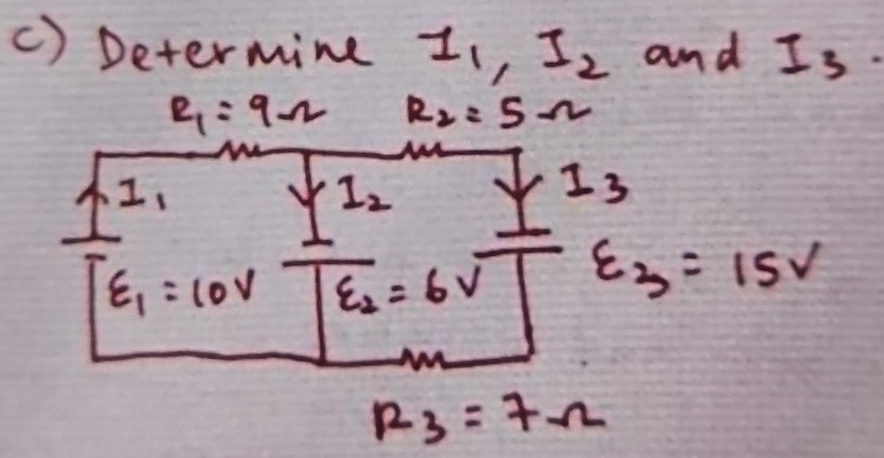 c) Determine I₁, I₂ and I₃.
R₁ = 9Ω R₂ = 5Ω
I₁ I₂ I₃
ε₁ = 10V ε₂ = 6V ε₃ = 15V
R₃ = 7Ω